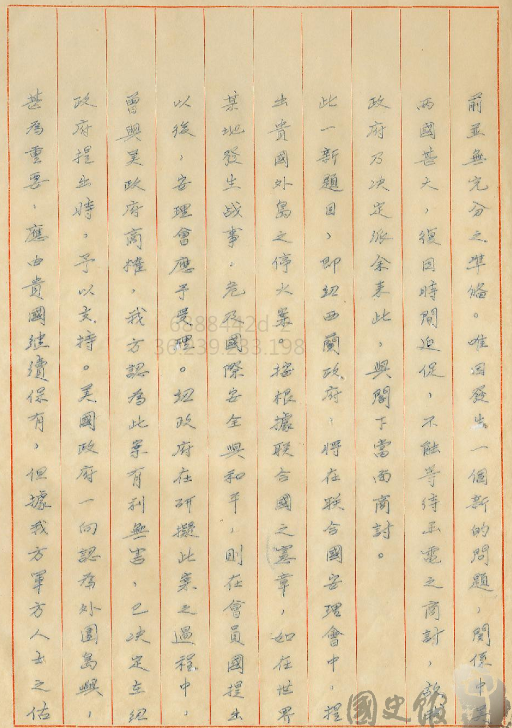 前並無充分之準備。唯因發生一個新的問題,關係中美
兩國甚大,復因時間迫促,不能等待函電之商討,敝國
政府乃決定派余來此,與閣下當面商討。
此一新題目,即紐西蘭政府,將在联合國安理會中,提
出貴國外島之停火案。按根據联合國之憲章,如在世界
某地發生战事,危及國際安全與和平,則在會員國提出
以後,安理會應予受理。紐政府在研擬此案之過程中,
曾與美政府商榷,我方認為此案有利無害,已決定在紐
政府提出時,予以支持。美國政府一向認為外圍島嶼,
甚為重要,應由貴國继續保有,但據我方軍方人士之估
6888442d
36.239.233.198
國史館